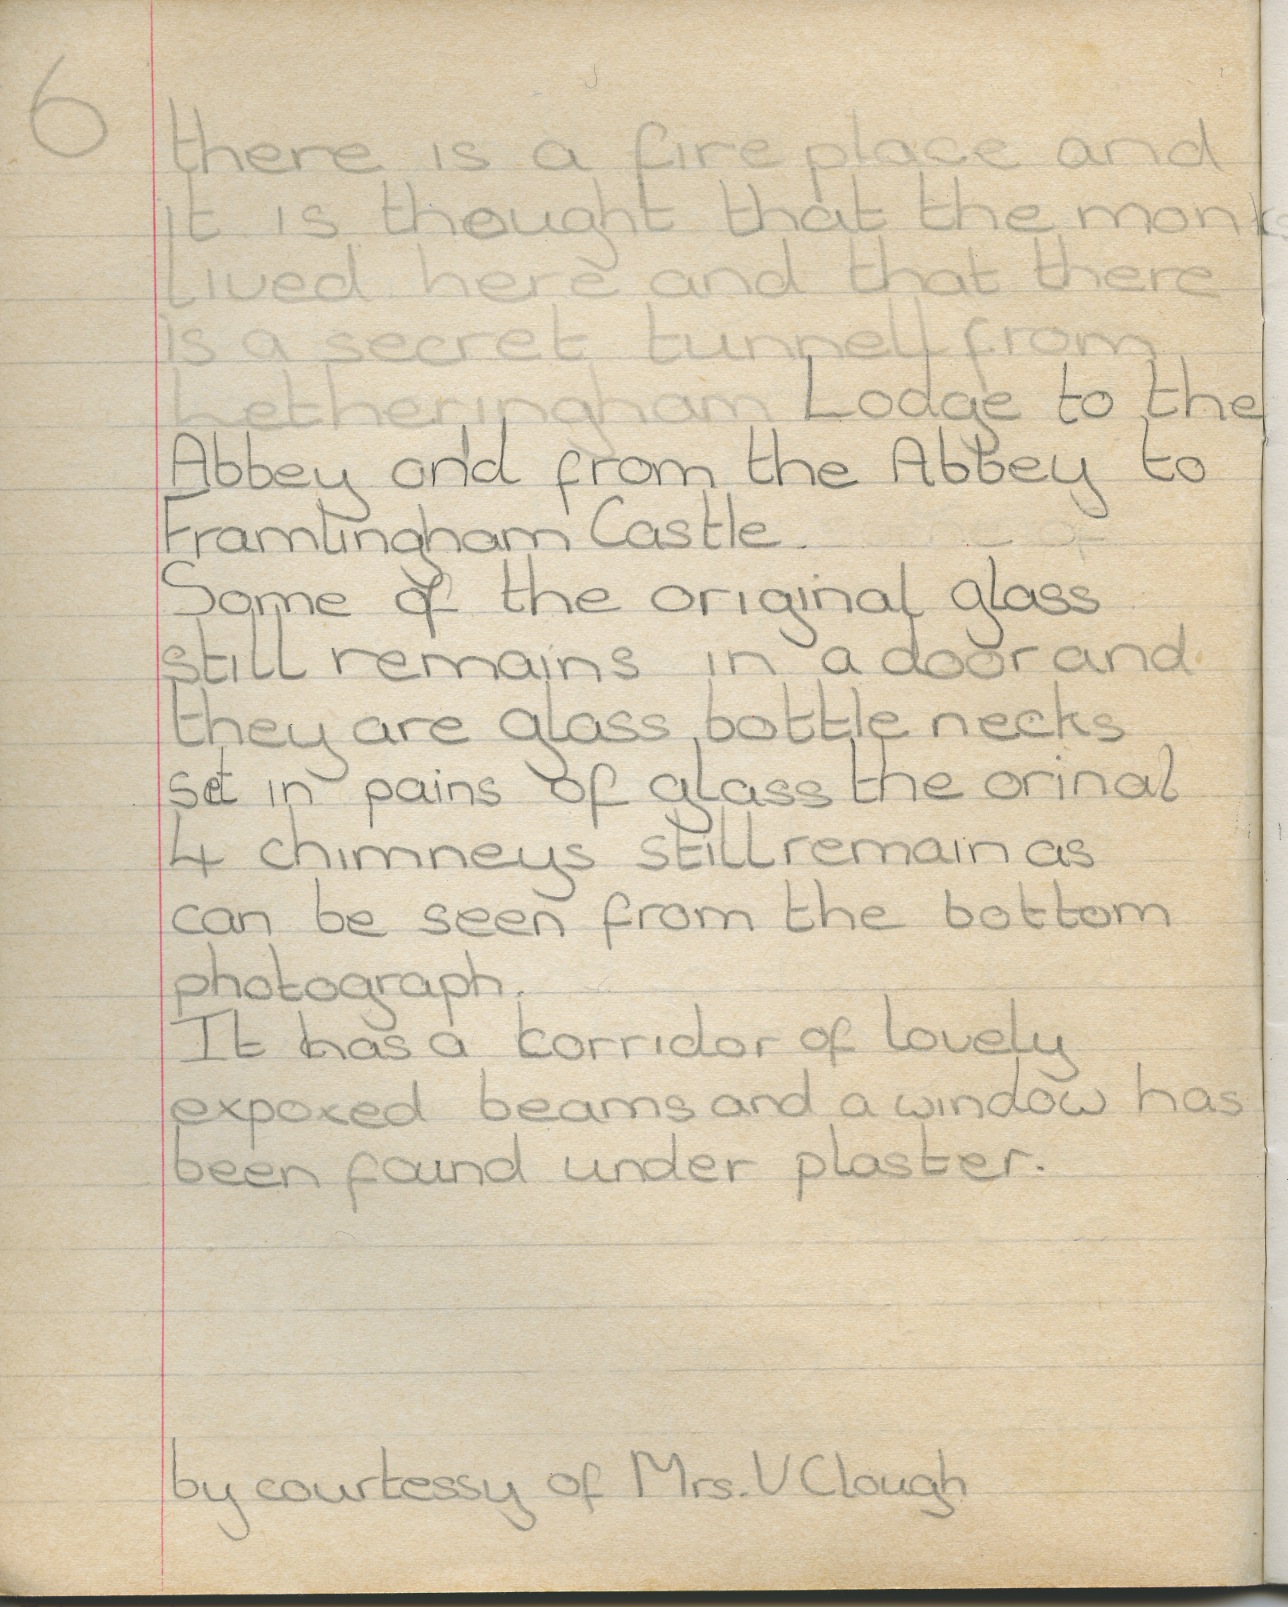 6
there is a fire place and
it is thought that the monks
Lived here and that there
is a secret tunnell from
Letheringham Lodge to the
Abbey and from the Abbey to
Framlingham Castle.
Some of the original glass
still remains in a door and
they are glass bottle necks
set in pains of glass the orinal
4 chimneys still remain as
can be seen from the bottom
photograph.
It has a corridor of lovely
exposed beams and a window has
been found under plaster.
by courtessy of Mrs. V Clough